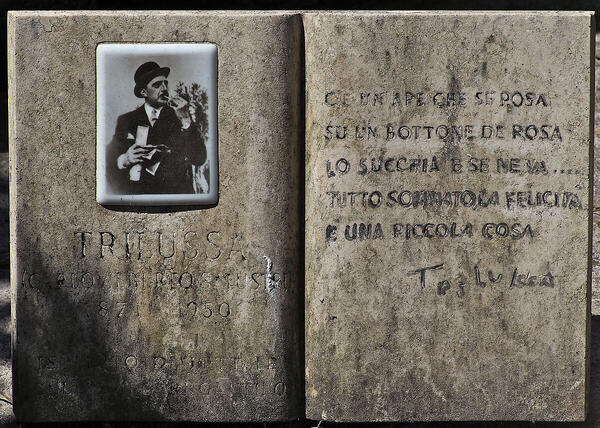 TRILUSSA
(CARLO ALBERTO SALUSTRI)
1871 1950
C'È UN APE CHE SE POSA
SU UN BOTTONE DE ROSA
LO SUCCHIA E SE NE VA .....
TUTTO SOMMATO LA FELICITÀ
È UNA PICCOLA COSA
Trilussa